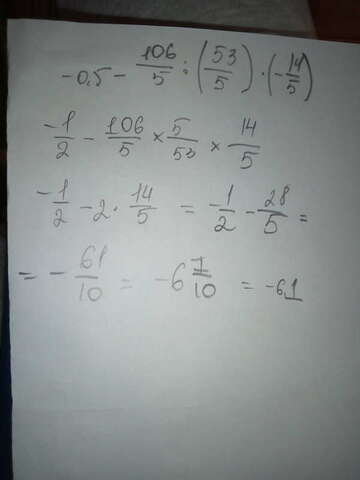 -0.5 - 106/5 : (53/5) · (-14/5)
-1/2 - 106/5 × 5/53 × 14/5
-1/2 - 2 · 14/5 = -1/2 - 28/5 =
= - 61/10 = -6 1/10 = -6,1